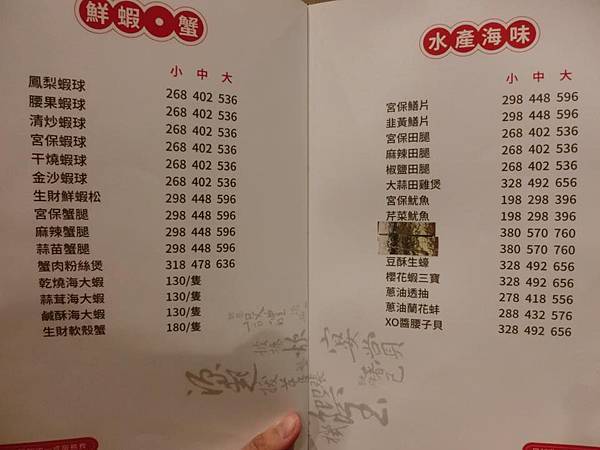 鮮蝦•蟹
小 中 大
鳳梨蝦球 268 402 536
腰果蝦球 268 402 536
清炒蝦球 268 402 536
宮保蝦球 268 402 536
干燒蝦球 268 402 536
金沙蝦球 268 402 536
生財鮮蝦松 298 448 596
宮保蟹腿 298 448 596
麻辣蟹腿 298 448 596
蒜苗蟹腿 298 448 596
蟹肉粉絲煲 318 478 636
乾燒海大蝦 130/隻
蒜茸海大蝦 130/隻
鹹酥海大蝦 130/隻
生財軟殼蟹 180/隻
水產海味
小 中 大
宮保鱔片 298 448 596
韭黃鱔片 298 448 596
宮保田腿 268 402 536
麻辣田腿 268 402 536
椒鹽田腿 268 402 536
大蒜田雞煲 328 492 656
宮保魷魚 198 298 396
芹菜魷魚 198 298 396
380 570 760
380 570 760
豆酥生蠔 328 492 656
櫻花蝦三寶 328 492 656
蔥油透抽 278 418 556
蔥油蘭花蚌 288 432 576
XO醬腰子貝 328 492 656